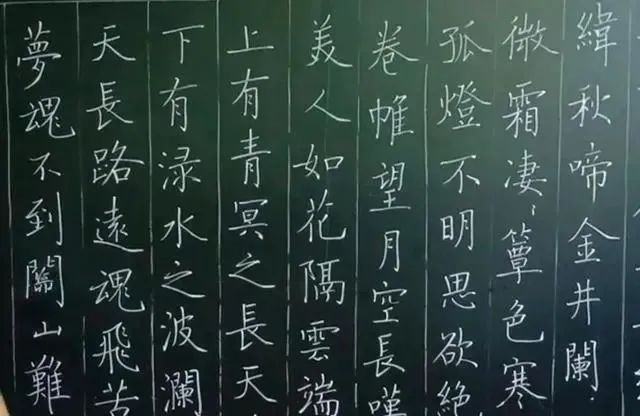 緯秋啼金井闌
微霜凄〻簟色寒
孤燈不明思欲絶
卷帷望月空長嘆
美人如花隔雲端
上有青冥之長天
下有渌水之波瀾
天長路遠魂飛苦
夢魂不到關山難